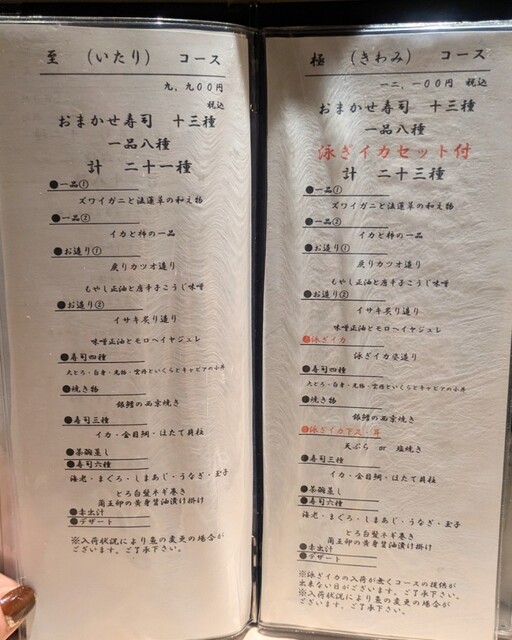 至 (いたり) コース
九、九〇〇円
税込
おまかせ寿司 十三種
一品八種
計 二十一種
●一品①
ズワイガニと法蓮草の和え物
●一品②
イカと柿の一品
●お造り①
戻りカツオ造り
もやし正油と唐辛子こうじ味噌
●お造り②
イサキ炙り造り
味噌正油とモロヘイヤジュレ
●寿司四種
大とろ・白身・光物・雲丹といくらとキャビアの小丼
●焼き物
銀鱈の西京焼き
●寿司三種
イカ・金目鯛・ほたて貝柱
●茶碗蒸し
●寿司六種
海老・まぐろ・しまあじ・うなぎ・玉子
とろ白髪ネギ巻き
蘭王卵の黄身醤油漬け掛け
●赤出汁
●デザート
※入荷状況により魚の変更の場合が
ございます。ご了承下さい。
極 (きわみ) コース
一二、一〇〇円 税込
おまかせ寿司 十三種
一品八種
泳ぎイカセット付
計 二十三種
●一品①
ズワイガニと法蓮草の和え物
●一品②
イカと柿の一品
●お造り①
戻りカツオ造り
もやし正油と唐辛子こうじ味噌
●お造り②
イサキ炙り造り
味噌正油とモロヘイヤジュレ
●泳ぎイカ
泳ぎイカ姿造り
●寿司四種
大とろ・白身・光物・雲丹といくらとキャビアの小丼
●焼き物
銀鱈の西京焼き
●泳ぎイカ下足・耳
天ぷら or 塩焼き
●寿司三種
イカ・金目鯛・ほたて貝柱
●茶碗蒸し
●寿司六種
海老・まぐろ・しまあじ・うなぎ・玉子
とろ白髪ネギ巻き
蘭王卵の黄身醤油漬け掛け
●赤出汁
●デザート
※泳ぎイカの入荷が無くコースの提供が
出来ない日がございます。ご了承下さい。
※入荷状況により魚の変更の場合が
ございます。ご了承下さい。